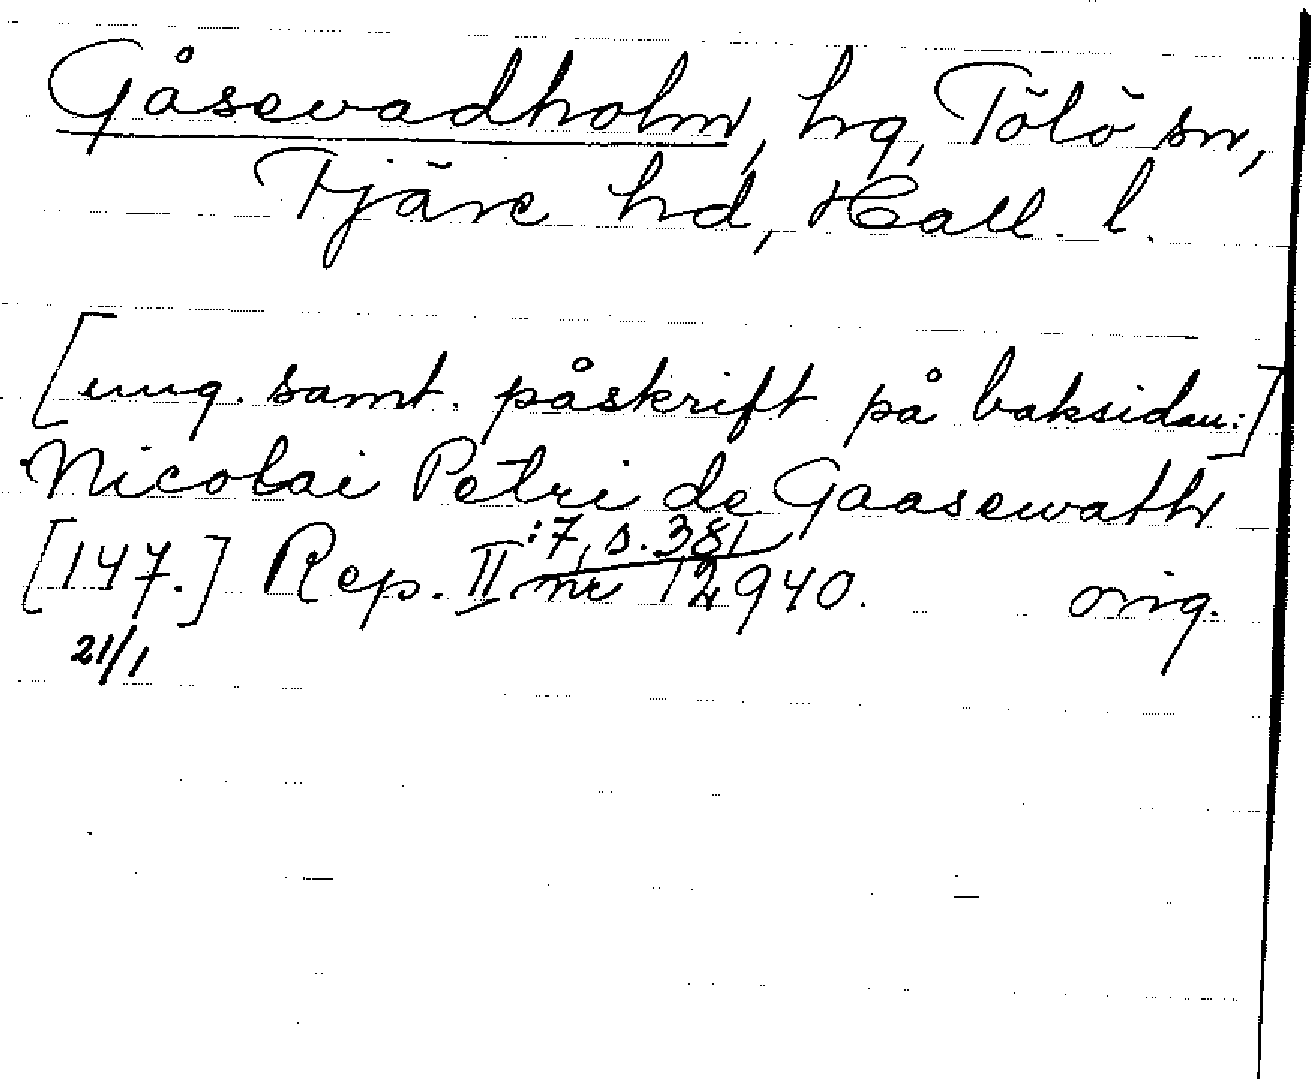 Gåsevadholm, hg, Tölö sn,
Fjäre hd, Hall. l.
[ung. samt. påskrift på baksidan:]
Nicolai Petri de Gaasewath
[147.] Rep. II :7, s. 381 nr 12940. orig.
21/1